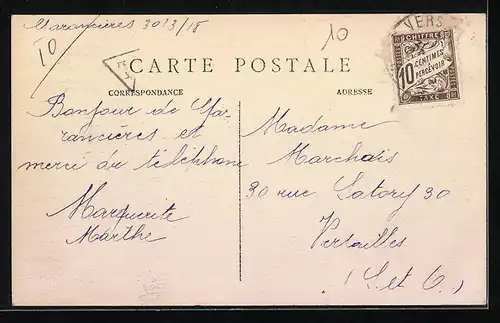 Garancières 30 13/18
10
10
VERS
CHIFFRE
10 CENTIMES À PERCEVOIR
TAXE
CARTE POSTALE
CORRESPONDANCE
ADRESSE
Bonjour de Ga-
rancières et
merci du téléphone
Marguerite
Marthe
Madame
Marchais
30 rue Satory 30
Versailles
(S. et O.)